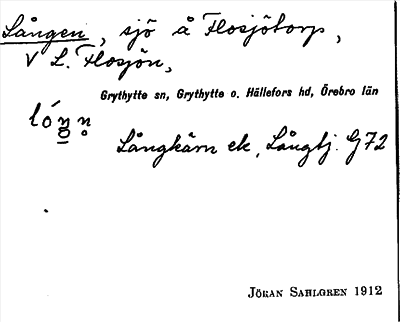 Lången, sjö å Flosjötorp,
V L. Flosjön,
Grythytte sn, Grythytte o. Hällefors hd, Örebro län
Långkärn ek, Långtj. G72
JÖRAN SAHLGREN 1912